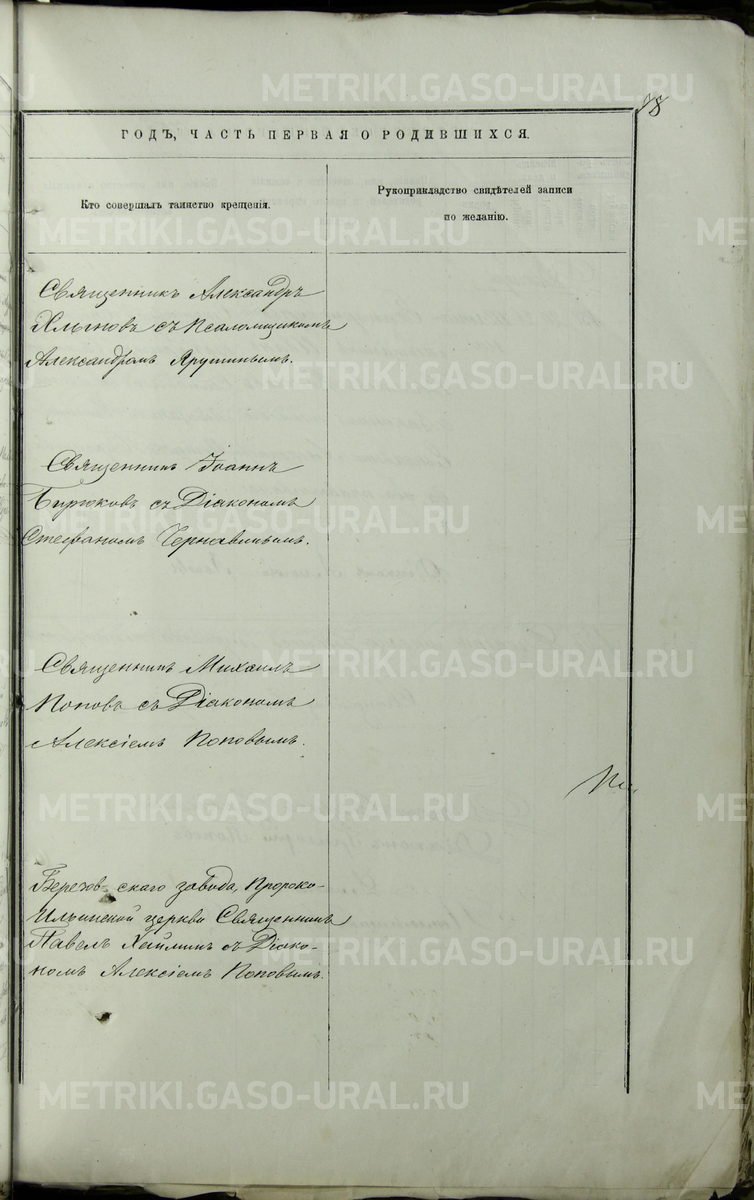 18
ГОДЪ, ЧАСТЬ ПЕРВАЯ О РОДИВШИХСЯ.
Кто совершалъ таинство крещенія.
Рукоприкладство свидѣтелей записи
по желанію.
Священникъ Александръ
Хлыновъ съ Псаломщикомъ
Александромъ Ярутинымъ.
Священникъ Іоаннъ
Бирюковъ съ Діакономъ
Стефаномъ Чернавинымъ.
Священникъ Михаилъ
Поповъ съ Діакономъ
Алексіемъ Поповымъ.
Березовскаго завода, Пророко-
Ильинской церкви Священникъ
Павелъ Хайлинъ съ Діако-
номъ Алексіемъ Поповымъ.
METRIKI.GASO-URAL.RU